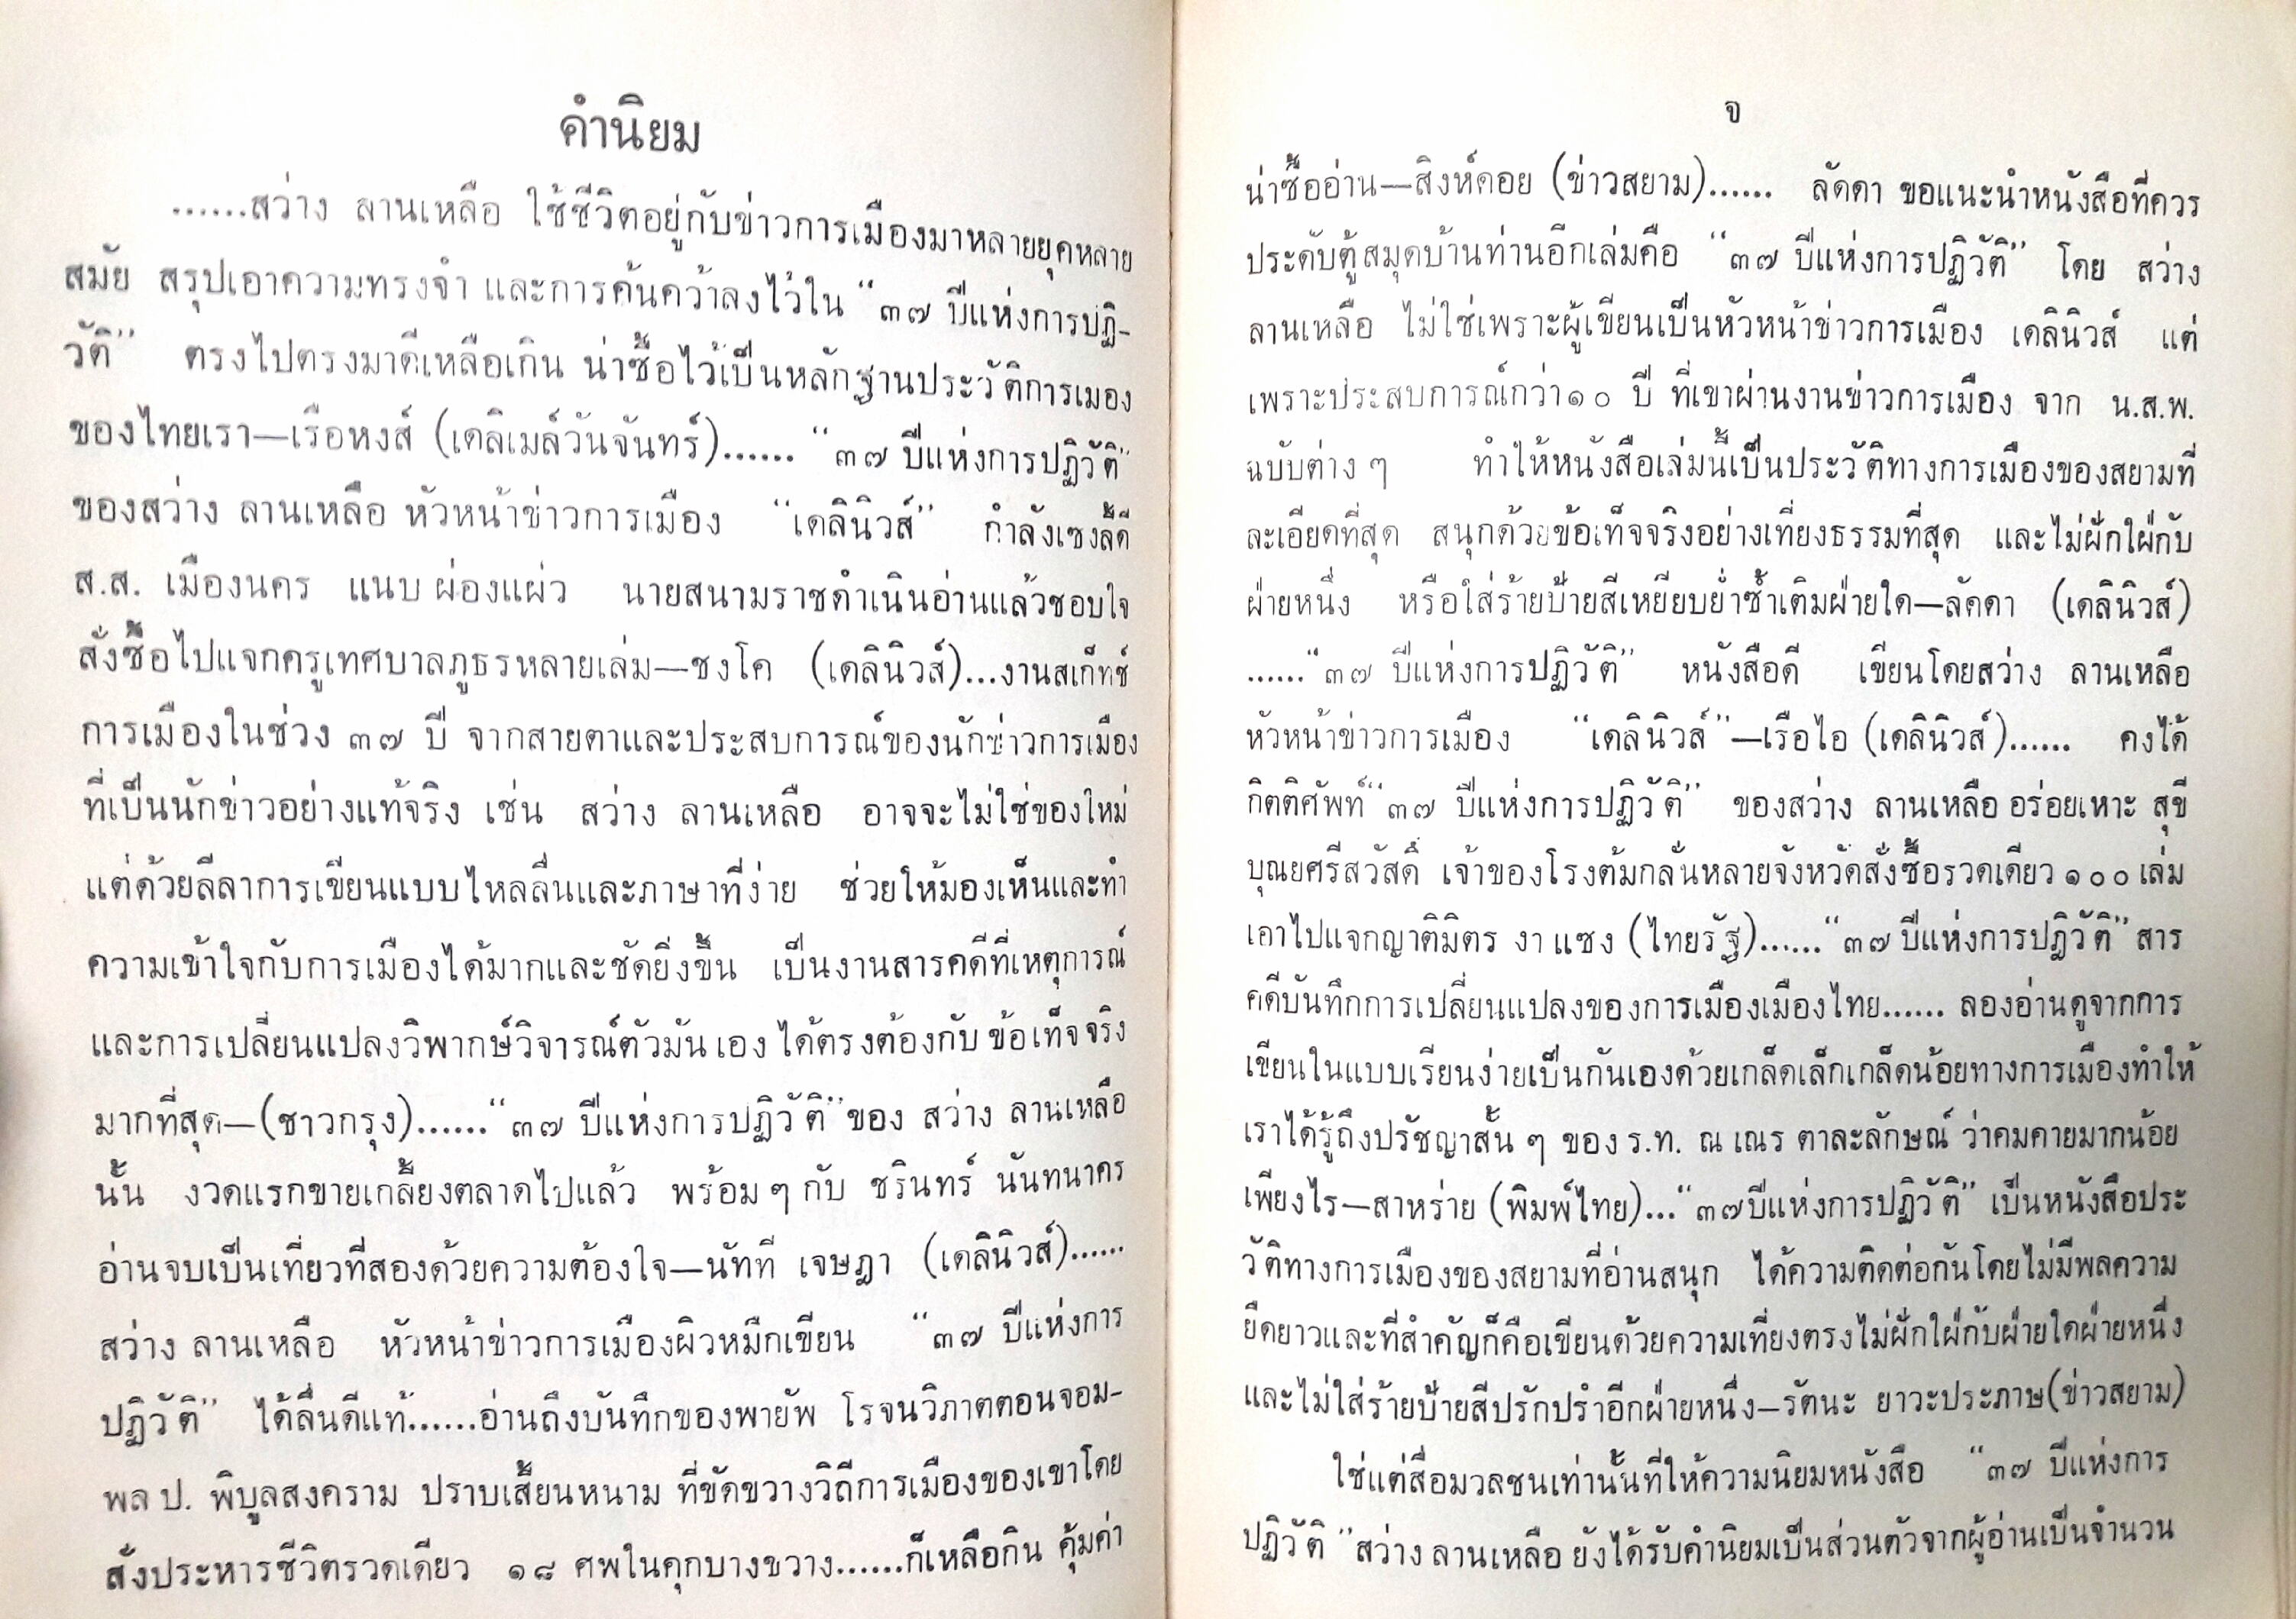 คำนิยม
......สว่าง ลานเหลือ ใช้ชีวิตอยู่กับข่าวการเมืองมาหลายยุคหลาย
สมัย สรุปเอาความทรงจำ และการค้นคว้าลงไว้ใน “๓๗ ปีแห่งการปฏิ-
วัติ” ตรงไปตรงมาดีเหลือเกิน น่าซื้อไว้เป็นหลักฐานประวัติการเมอง
ของไทยเรา—เรือหงส์ (เดลิเมล์วันจันทร์)...... “๓๗ ปีแห่งการปฏิวัติ”
ของสว่าง ลานเหลือ หัวหน้าข่าวการเมือง “เดลินิวส์” กำลังเซงลี้ดี
ส.ส. เมืองนคร แนบ ผ่องแผ่ว นายสนามราชดำเนินอ่านแล้วชอบใจ
สั่งซื้อไปแจกครูเทศบาลภูธรหลายเล่ม—ชงโค (เดลินิวส์)...งานสเก็ทช์
การเมืองในช่วง ๓๗ ปี จากสายตาและประสบการณ์ของนักข่าวการเมือง
ที่เป็นนักข่าวอย่างแท้จริง เช่น สว่าง ลานเหลือ อาจจะไม่ใช่ของใหม่
แต่ด้วยลีลาการเขียนแบบไหลลื่นและภาษาที่ง่าย ช่วยให้มองเห็นและทำ
ความเข้าใจกับการเมืองได้มากและชัดยิ่งขึ้น เป็นงานสารคดีที่เหตุการณ์
และการเปลี่ยนแปลงวิพากษ์วิจารณ์ตัวมันเอง ได้ตรงต้องกับ ข้อเท็จจริง
มากที่สุด—(ชาวกรุง)......“๓๗ ปีแห่งการปฏิวัติ”ของ สว่าง ลานเหลือ
นั้น งวดแรกขายเกลี้ยงตลาดไปแล้ว พร้อม ๆ กับ ชรินทร์ นันทนาคร
อ่านจบเป็นเที่ยวที่สองด้วยความต้องใจ—นัทที เจษฎา (เดลินิวส์)......
สว่าง ลานเหลือ หัวหน้าข่าวการเมืองผิวหมึกเขียน “๓๗ ปีแห่งการ
ปฏิวัติ” ได้ลื่นดีแท้......อ่านถึงบันทึกของพายัพ โรจนวิภาตตอนจอม-
พล ป. พิบูลสงคราม ปราบเสี้ยนหนาม ที่ขัดขวางวิถีการเมืองของเขาโดย
สั่งประหารชีวิตรวดเดียว ๑๘ ศพในคุกบางขวาง......ก็เหลือกิน คุ้มค่า
จ
น่าซื้ออ่าน—สิงห์คอย (ข่าวสยาม)...... ลัดดา ขอแนะนำหนังสือที่ควร
ประดับตู้สมุดบ้านท่านอีกเล่มคือ “๓๗ ปีแห่งการปฏิวัติ” โดย สว่าง
ลานเหลือ ไม่ใช่เพราะผู้เขียนเป็นหัวหน้าข่าวการเมือง เดลินิวส์ แต่
เพราะประสบการณ์กว่า ๑๐ ปี ที่เขาผ่านงานข่าวการเมือง จาก น.ส.พ.
ฉบับต่าง ๆ ทำให้หนังสือเล่มนี้เป็นประวัติทางการเมืองของสยามที่
ละเอียดที่สุด สนุกด้วยข้อเท็จจริงอย่างเที่ยงธรรมที่สุด และไม่ฝักใฝ่กับ
ฝ่ายหนึ่ง หรือใส่ร้ายป้ายสีเหยียบย่ำซ้ำเติมฝ่ายใด—ลัคดา (เดลินิวส์)
......“๓๗ ปีแห่งการปฏิวัติ” หนังสือดี เขียนโดยสว่าง ลานเหลือ
หัวหน้าข่าวการเมือง “เดลินิวส์”—เรือไอ (เดลินิวส์)...... คงได้
กิตติศัพท์“๓๗ ปีแห่งการปฏิวัติ” ของสว่าง ลานเหลือ อร่อยเหาะ สุขี
บุณยศรีสวัสดิ์ เจ้าของโรงต้มกลั่นหลายจังหวัดสั่งซื้อรวดเดียว ๑๐๐ เล่ม
เอาไปแจกญาติมิตร งา แซง (ไทยรัฐ)......“๓๗ ปีแห่งการปฏิวัติ” สาร
คดีบันทึกการเปลี่ยนแปลงของการเมืองเมืองไทย...... ลองอ่านดูจากการ
เขียนในแบบเรียนง่ายเป็นกันเองด้วยเกล็ดเล็กเกล็ดน้อยทางการเมืองทำให้
เราได้รู้ถึงปรัชญาสั้น ๆ ของ ร.ท. ณ เณร ตาละลักษณ์ ว่าคมคายมากน้อย
เพียงไร—สาหร่าย (พิมพ์ไทย)...“๓๗ปีแห่งการปฏิวัติ” เป็นหนังสือประ
วัติทางการเมืองของสยามที่อ่านสนุก ได้ความติดต่อกันโดยไม่มีพลความ
ยืดยาวและที่สำคัญก็คือเขียนด้วยความเที่ยงตรงไม่ฝักใฝ่กับฝ่ายใดฝ่ายหนึ่ง
และไม่ใส่ร้ายป้ายสีปรักปรำอีกฝ่ายหนึ่ง—รัตนะ ยาวะประภาษ(ข่าวสยาม)
ใช่แต่สื่อมวลชนเท่านั้นที่ให้ความนิยมหนังสือ “๓๗ ปีแห่งการ
ปฏิวัติ”สว่าง ลานเหลือ ยังได้รับคำนิยมเป็นส่วนตัวจากผู้อ่านเป็นจำนวน